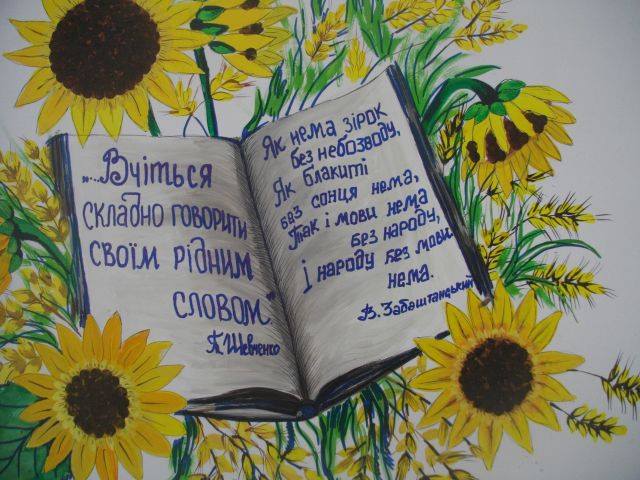 „...Вчіться
складно говорити
своїм рідним
словом."
Т. Шевченко
Як нема зірок
без небозводу,
Як блакиті
без сонця нема,
Так і мови нема
без народу,
І народу без мови
нема.
В. Забаштанський